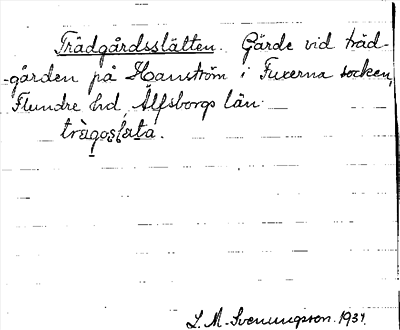 Trädgårdsslätten. Gärde vid träd-
gården på Hanström i Fuxerna socken,
Flundre hd, Älfsborgs län.
L. M. Svenungsson. 1931.